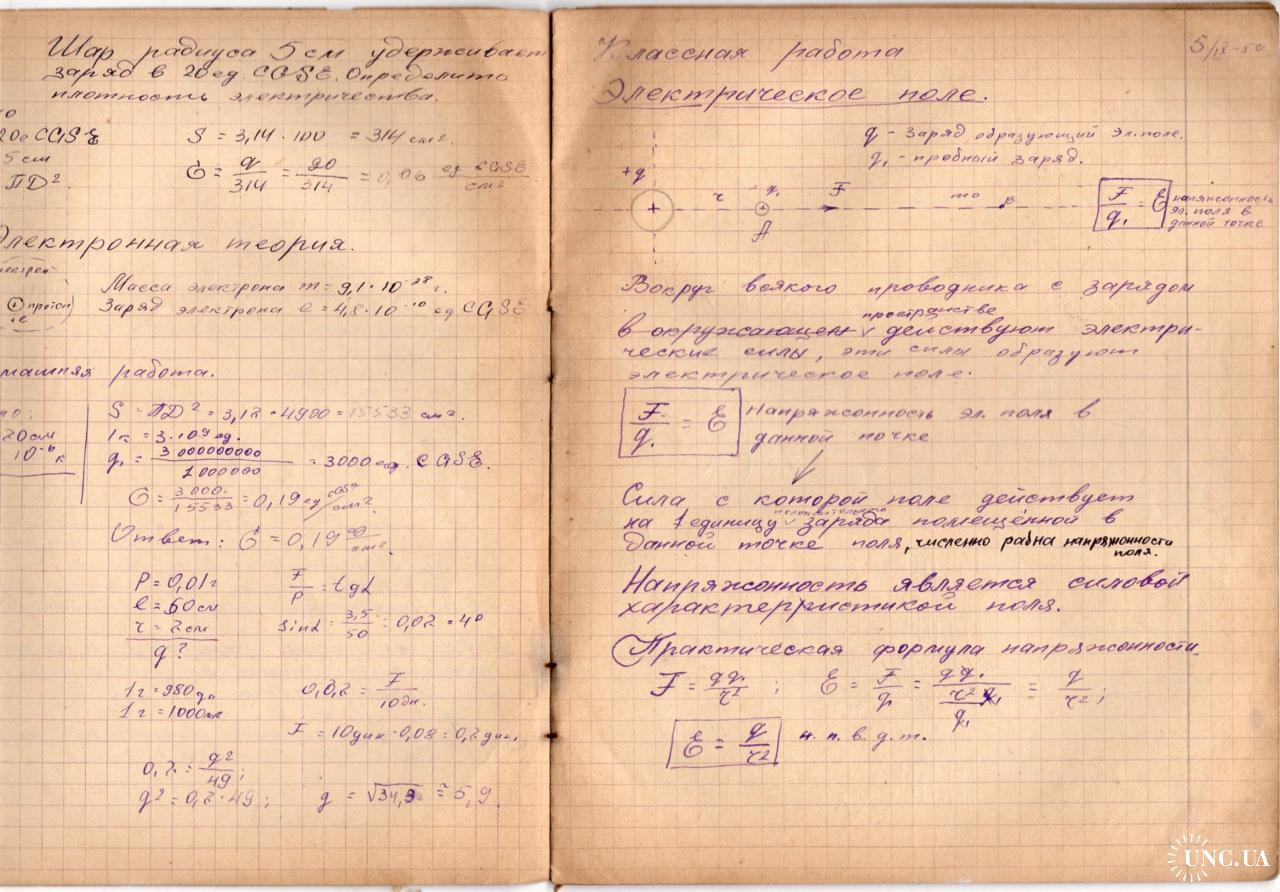 Шар радиуса 5 см удерживает
заряд в 20 ед. CGSE. Определить
плотность электричества.
20е CGSE
5 см
ПД².
S = 3,14 · 100 = 314 см².
б = q/314 = 20/314 = 0,06 ед CGSE/см²
Электронная теория.
Масса электрона m = 9,1 · 10⁻²⁸ г.
Заряд электрона e = 4,8 · 10⁻¹⁰ ед CGSE
протон
машняя работа.
20 см
10⁻⁶ к
S = ПД² = 3,17 · 4900 = 15533 см².
1к = 3 · 10⁹ ед.
q₁ = 3000000000/1000000 = 3000 ед. CGSE.
б = 3000/15533 = 0,19 ед CGSE/см².
Ответ: б = 0,19 ед/см².
P = 0,01г
l = 50 см
r = 7 см
q ?
F/P = tgα
sinα = 3,5/50 = 0,07 = 4°
1г = 980 дн
1г = 1000мг
0,07 = F/10дн.
F = 10дин · 0,07 = 0,7 дин.
0,7 = q²/49;
q² = 0,7 · 49; q = √34,3 ≈ 5,9.
Классная работа
5/IX-50
Электрическое поле.
q - заряд, образующий эл. поле.
q₁ - пробный заряд.
+q r q₁ F B
+ + A
F/q₁ = E напряжонность
эл. поля в
данной точке
Вокруг всякого проводника с зарядом
пространстве
в окружающем v действуют электри-
ческие силы, эти силы образуют
электрическое поле.
F/q₁ = E Напряжонность эл. поля в
данной точке
Сила с которой поле действует
положительного
на 1 единицу v заряда помещённой в
данной точке поля, численно равна напряжонности
поля.
Напряжонность является силовой
характерристикой поля.
Практическая формула напряжонности.
F = qq₁/r² ; E = F/q₁ = qq₁/r²q₁ = q/r²;
E = q/r² н. п. в. д. т.
UNC.UA